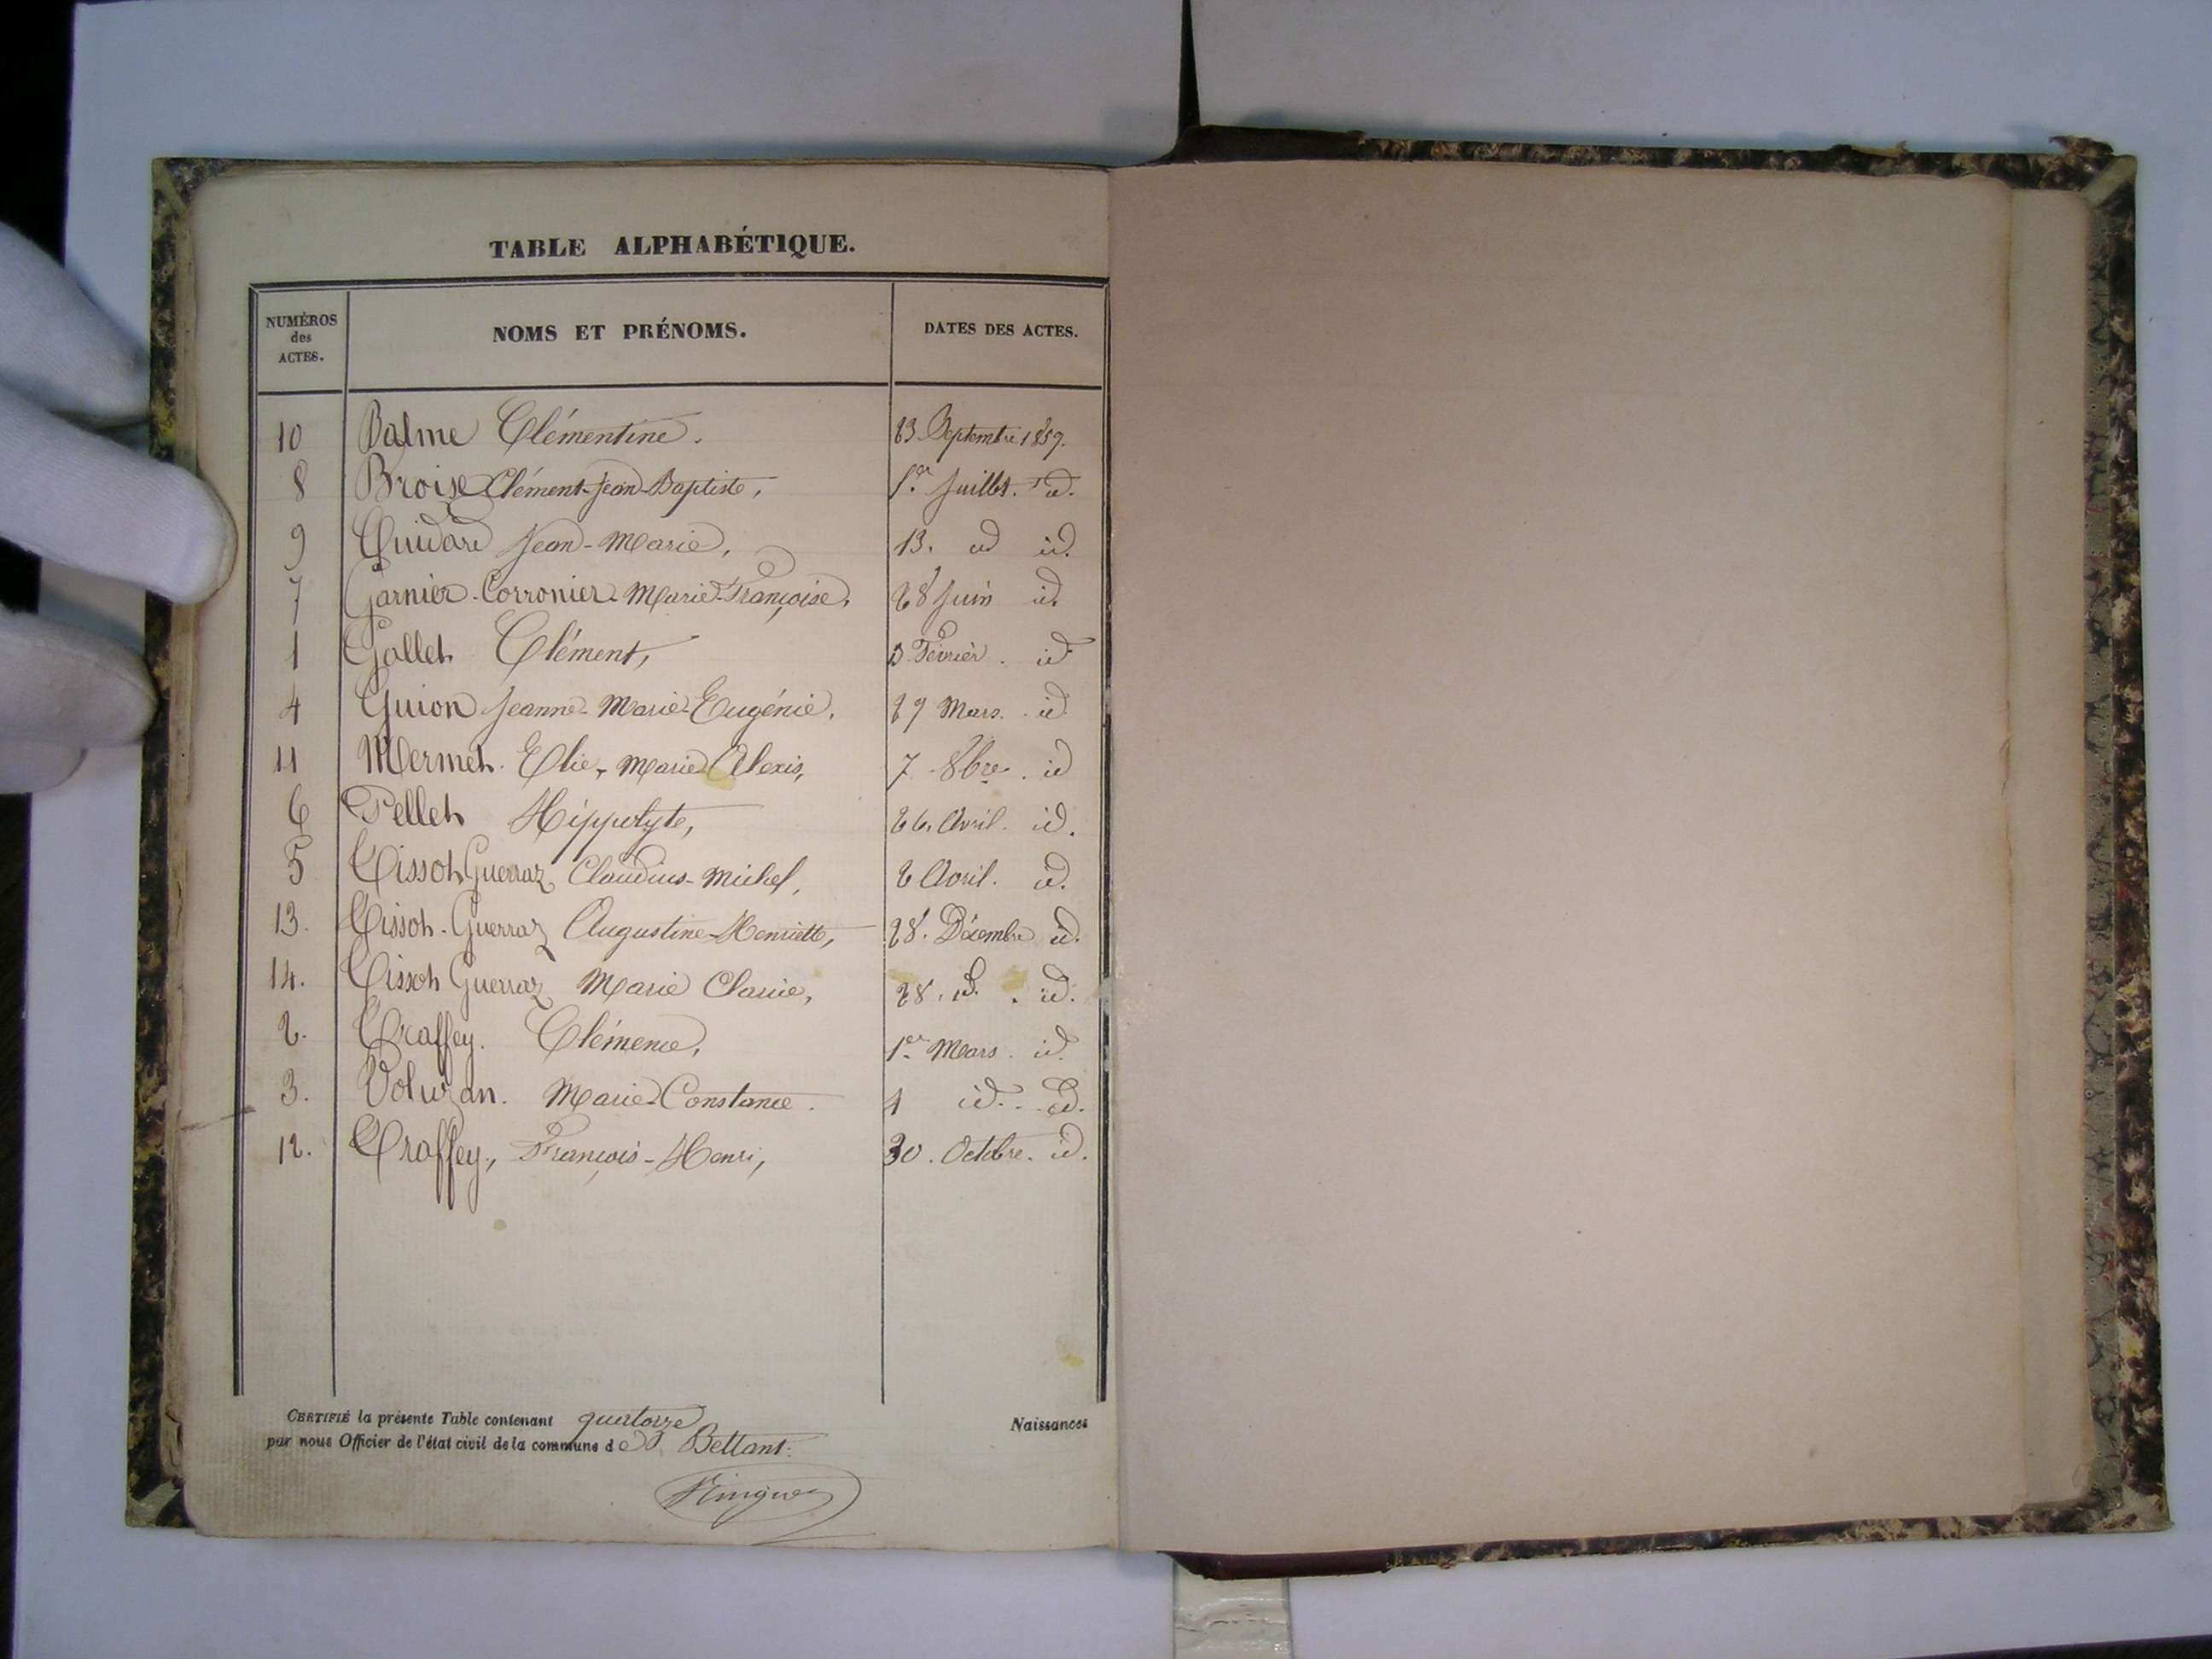 TABLE ALPHABÉTIQUE.
NUMÉROS des ACTES. NOMS ET PRÉNOMS. DATES DES ACTES.
10 Balme Clémentine. 23 Septembre 1859.
8 Broise Clément-Jean-Baptiste, 1.er Juillet. id.
9 Cuidard Jean-Marie, 13. id id.
7 Garnier-Corronier Marie-Françoise. 28 Juin id.
1 Gallet Clément, Février. id
4 Guion Jeanne-Marie-Eugénie. 29 Mars. id
11 Mermet. Elie, Marie Alexis, 7 8bre. id
6 Pellet Hippolyte, 26. Avril. id.
5 Tissot Guerraz Claudius-Michel, 2 Avril. id.
13. Tissot-Guerraz Augustine-Henriette, 28. Décembre id.
14. Tissot Guerraz Marie Clarie, 28. id. id.
2. Traffey. Clémence, 1.er Mars. id.
3. Voluzan. Marie-Constance. 4 id. id.
12. Traffey, François-Henri, 30. Octobre. id.
CERTIFIÉ la présente Table contenant quatorze Naissances
par nous Officier de l'état civil de la commune de Bettant.